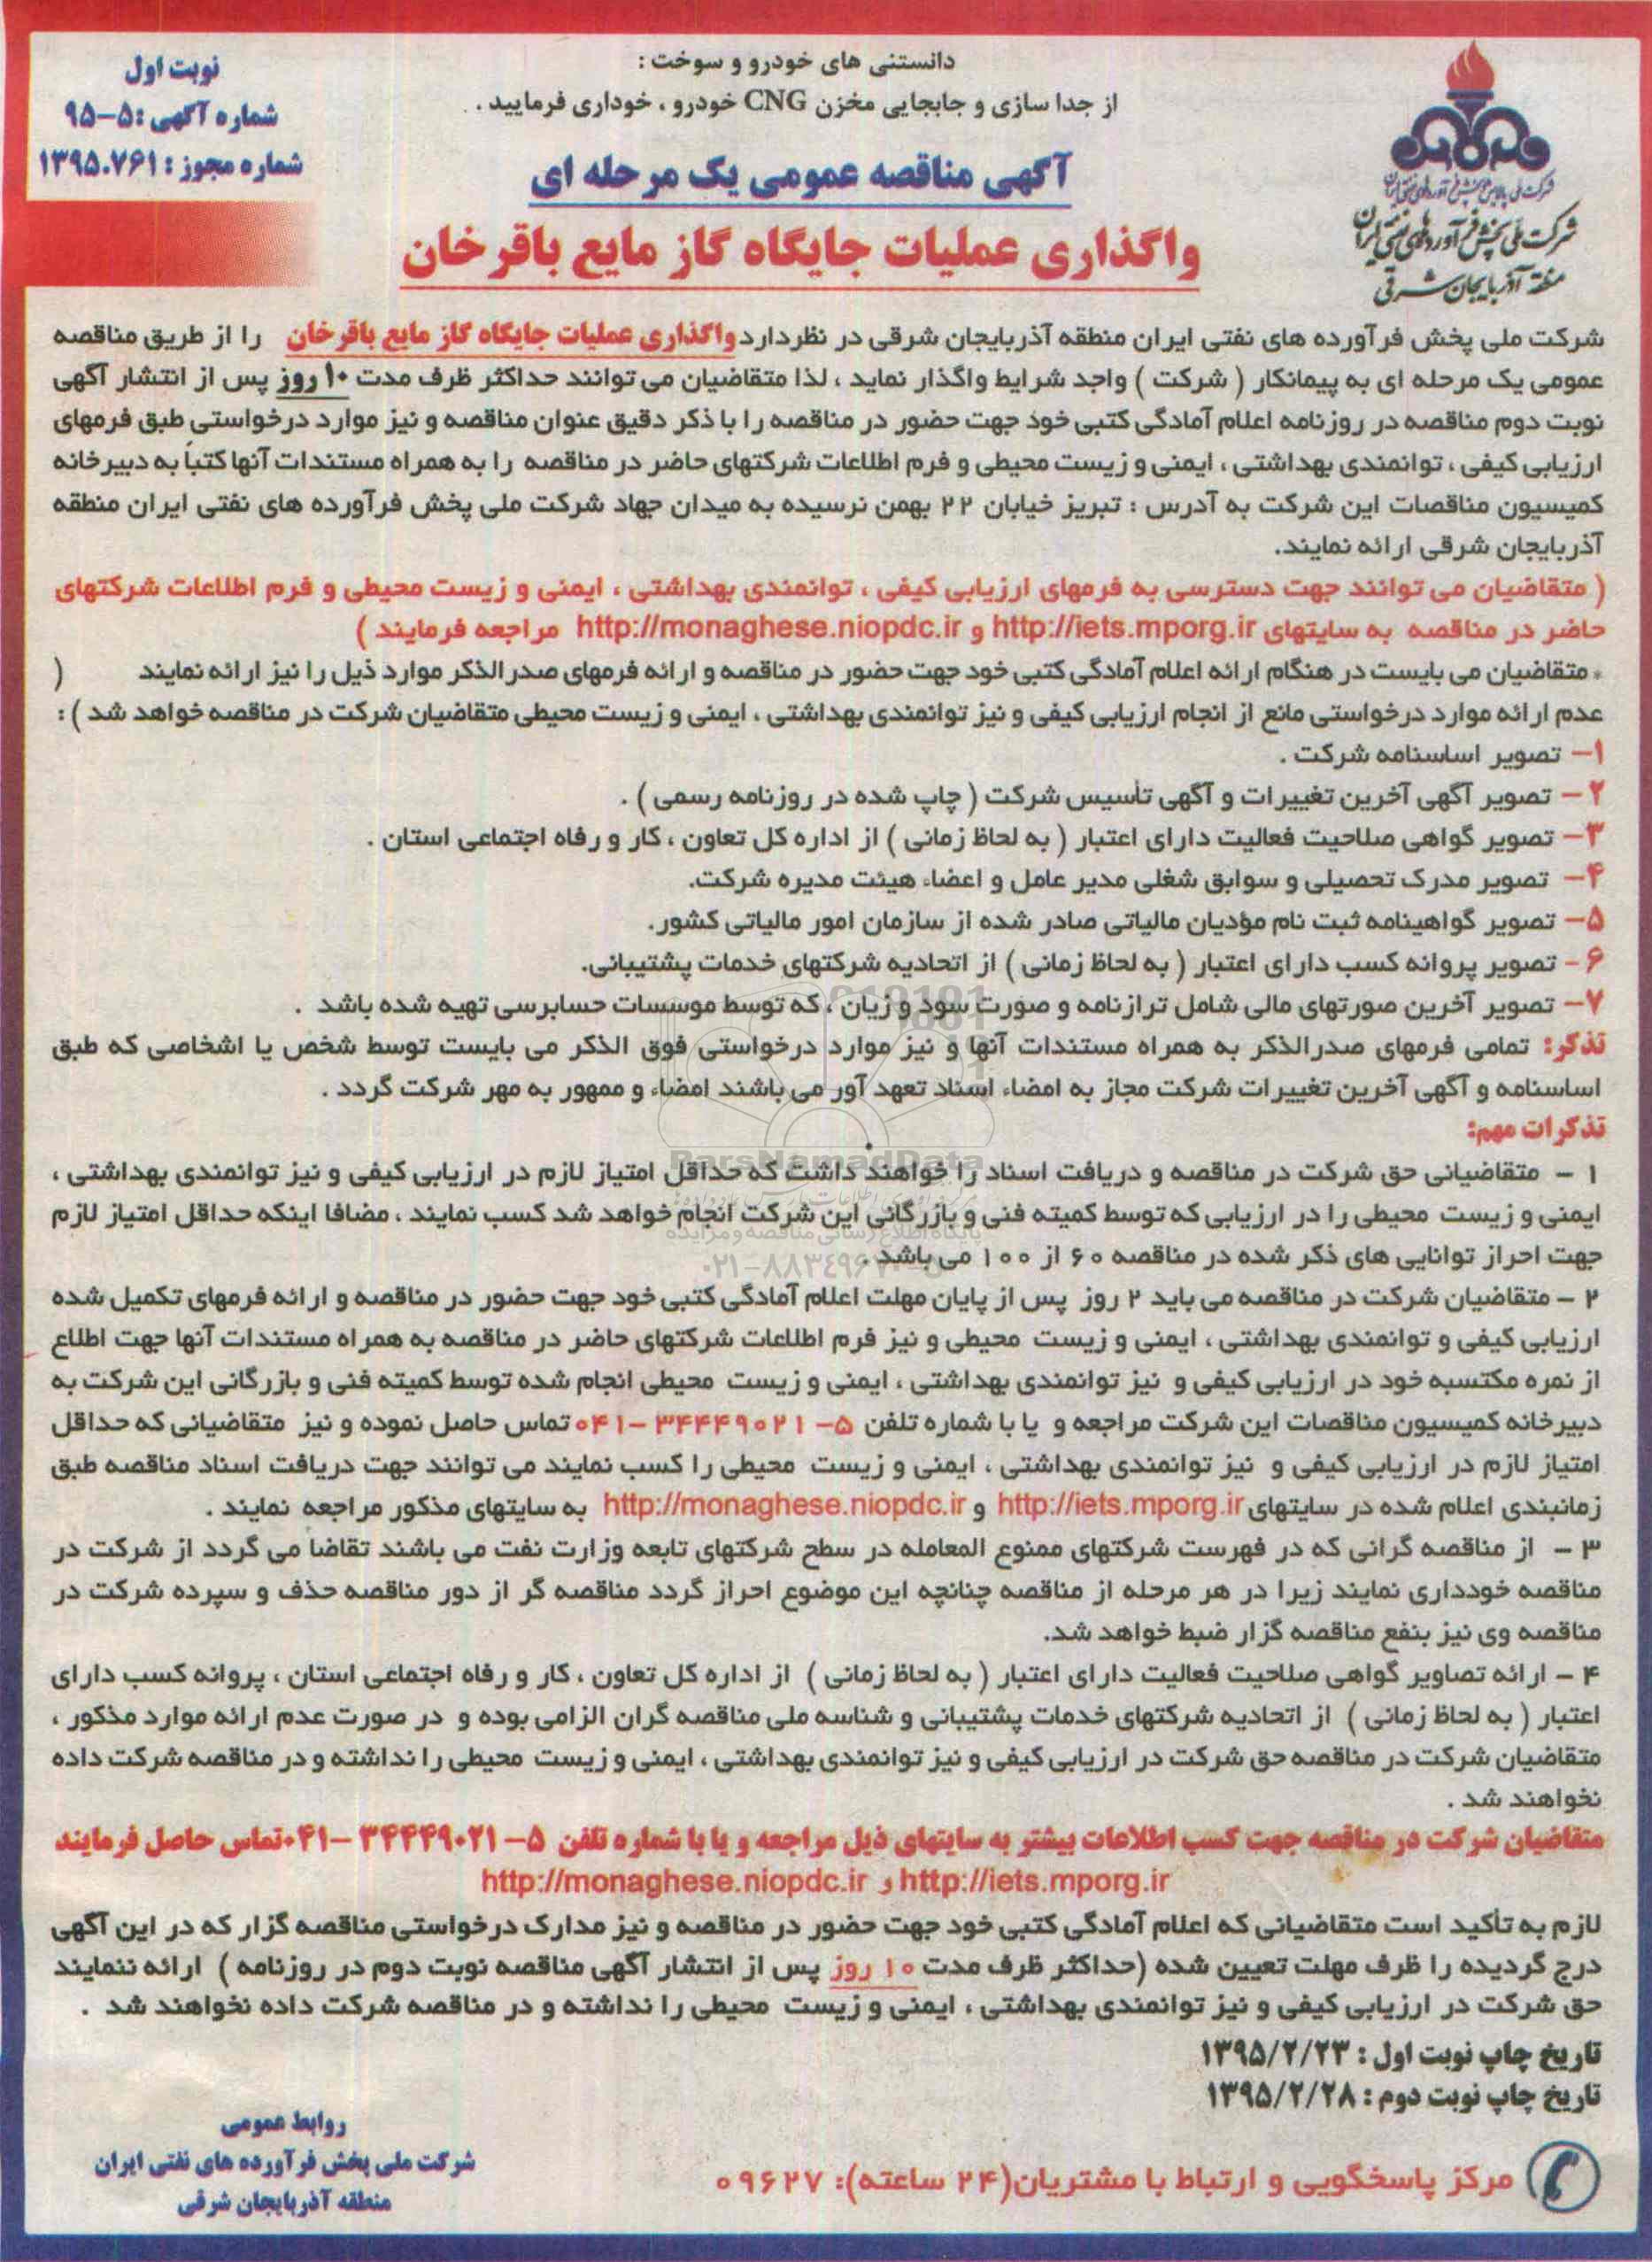 دانستنی های خودرو و سوخت :
از جدا سازی و جابجایی مخزن CNG خودرو ، خوداری فرمایید .
نوبت اول
شماره آگهی :۵-۹۵
شماره مجوز : ۱۳۹۵.۷۶۱
شرکت ملی پخش فرآورده های نفتی ایران
منطقه آذربایجان شرقی
آگهی مناقصه عمومی یک مرحله ای
واگذاری عملیات جایگاه گاز مایع باقرخان
شرکت ملی پخش فرآورده های نفتی ایران منطقه آذربایجان شرقی در نظردارد واگذاری عملیات جایگاه گاز مایع باقرخان را از طریق مناقصه
عمومی یک مرحله ای به پیمانکار ( شرکت ) واجد شرایط واگذار نماید ، لذا متقاضیان می توانند حداکثر ظرف مدت ۱۰ روز پس از انتشار آگهی
نوبت دوم مناقصه در روزنامه اعلام آمادگی کتبی خود جهت حضور در مناقصه را با ذکر دقیق عنوان مناقصه و نیز موارد درخواستی طبق فرمهای
ارزیابی کیفی ، توانمندی بهداشتی ، ایمنی و زیست محیطی و فرم اطلاعات شرکتهای حاضر در مناقصه را به همراه مستندات آنها کتباً به دبیرخانه
کمیسیون مناقصات این شرکت به آدرس : تبریز خیابان ۲۲ بهمن نرسیده به میدان جهاد شرکت ملی پخش فرآورده های نفتی ایران منطقه
آذربایجان شرقی ارائه نمایند.
( متقاضیان می توانند جهت دسترسی به فرمهای ارزیابی کیفی ، توانمندی بهداشتی ، ایمنی و زیست محیطی و فرم اطلاعات شرکتهای
حاضر در مناقصه به سایتهای http://iets.mporg.ir و http://monaghese.niopdc.ir مراجعه فرمایند )
* متقاضیان می بایست در هنگام ارائه اعلام آمادگی کتبی خود جهت حضور در مناقصه و ارائه فرمهای صدرالذکر موارد ذیل را نیز ارائه نمایند (
عدم ارائه موارد درخواستی مانع از انجام ارزیابی کیفی و نیز توانمندی بهداشتی ، ایمنی و زیست محیطی متقاضیان شرکت در مناقصه خواهد شد ) :
۱- تصویر اساسنامه شرکت .
۲ - تصویر آگهی آخرین تغییرات و آگهی تأسیس شرکت ( چاپ شده در روزنامه رسمی ) .
۳- تصویر گواهی صلاحیت فعالیت دارای اعتبار ( به لحاظ زمانی ) از اداره کل تعاون ، کار و رفاه اجتماعی استان .
۴- تصویر مدرک تحصیلی و سوابق شغلی مدیر عامل و اعضاء هیئت مدیره شرکت.
۵- تصویر گواهینامه ثبت نام مؤدیان مالیاتی صادر شده از سازمان امور مالیاتی کشور.
۶- تصویر پروانه کسب دارای اعتبار ( به لحاظ زمانی ) از اتحادیه شرکتهای خدمات پشتیبانی.
۷- تصویر آخرین صورتهای مالی شامل ترازنامه و صورت سود و زیان ، که توسط موسسات حسابرسی تهیه شده باشد .
تذکر: تمامی فرمهای صدرالذکر به همراه مستندات آنها و نیز موارد درخواستی فوق الذکر می بایست توسط شخص یا اشخاصی که طبق
اساسنامه و آگهی آخرین تغییرات شرکت مجاز به امضاء اسناد تعهد آور می باشند امضاء و ممهور به مهر شرکت گردد .
تذکرات مهم:
ParsNamadData
پایگاه اطلاع رسانی مناقصه و مزایده
۱ - متقاضیانی حق شرکت در مناقصه و دریافت اسناد را خواهند داشت که حداقل امتیاز لازم در ارزیابی کیفی و نیز توانمندی بهداشتی ،
ایمنی و زیست محیطی را در ارزیابی که توسط کمیته فنی و بازرگانی این شرکت انجام خواهد شد کسب نمایند ، مضافا اینکه حداقل امتیاز لازم
جهت احراز توانایی های ذکر شده در مناقصه ۶۰ از ۱۰۰ می باشد .
۲ - متقاضیان شرکت در مناقصه می باید ۲ روز پس از پایان مهلت اعلام آمادگی کتبی خود جهت حضور در مناقصه و ارائه فرمهای تکمیل شده
ارزیابی کیفی و توانمندی بهداشتی ، ایمنی و زیست محیطی و نیز فرم اطلاعات شرکتهای حاضر در مناقصه به همراه مستندات آنها جهت اطلاع
از نمره مکتسبه خود در ارزیابی کیفی و نیز توانمندی بهداشتی ، ایمنی و زیست محیطی انجام شده توسط کمیته فنی و بازرگانی این شرکت به
دبیرخانه کمیسیون مناقصات این شرکت مراجعه و یا با شماره تلفن ۵- ۳۴۴۴۹۰۲۱ -۰۴۱ تماس حاصل نموده و نیز متقاضیانی که حداقل
امتیاز لازم در ارزیابی کیفی و نیز توانمندی بهداشتی ، ایمنی و زیست محیطی را کسب نمایند می توانند جهت دریافت اسناد مناقصه طبق
زمانبندی اعلام شده در سایتهای http://iets.mporg.ir و http://monaghese.niopdc.ir به سایتهای مذکور مراجعه نمایند .
۳ - از مناقصه گرانی که در فهرست شرکتهای ممنوع المعامله در سطح شرکتهای تابعه وزارت نفت می باشند تقاضا می گردد از شرکت در
مناقصه خودداری نمایند زیرا در هر مرحله از مناقصه چنانچه این موضوع احراز گردد مناقصه گر از دور مناقصه حذف و سپرده شرکت در
مناقصه وی نیز بنفع مناقصه گزار ضبط خواهد شد.
۴ - ارائه تصاویر گواهی صلاحیت فعالیت دارای اعتبار ( به لحاظ زمانی ) از اداره کل تعاون ، کار و رفاه اجتماعی استان ، پروانه کسب دارای
اعتبار ( به لحاظ زمانی ) از اتحادیه شرکتهای خدمات پشتیبانی و شناسه ملی مناقصه گران الزامی بوده و در صورت عدم ارائه موارد مذکور ،
متقاضیان شرکت در مناقصه حق شرکت در ارزیابی کیفی و نیز توانمندی بهداشتی ، ایمنی و زیست محیطی را نداشته و در مناقصه شرکت داده
نخواهند شد .
متقاضیان شرکت در مناقصه جهت کسب اطلاعات بیشتر به سایتهای ذیل مراجعه و یا با شماره تلفن ۵- ۳۴۴۴۹۰۲۱ -۰۴۱ تماس حاصل فرمایند
http://iets.mporg.ir و http://monaghese.niopdc.ir
لازم به تأکید است متقاضیانی که اعلام آمادگی کتبی خود جهت حضور در مناقصه و نیز مدارک درخواستی مناقصه گزار که در این آگهی
درج گردیده را ظرف مهلت تعیین شده (حداکثر ظرف مدت ۱۰ روز پس از انتشار آگهی مناقصه نوبت دوم در روزنامه ) ارائه ننمایند
حق شرکت در ارزیابی کیفی و نیز توانمندی بهداشتی ، ایمنی و زیست محیطی را نداشته و در مناقصه شرکت داده نخواهند شد .
تاریخ چاپ نوبت اول : ۱۳۹۵/۲/۲۳
تاریخ چاپ نوبت دوم : ۱۳۹۵/۲/۲۸
روابط عمومی
شرکت ملی پخش فرآورده های نفتی ایران
منطقه آذربایجان شرقی
مرکز پاسخگویی و ارتباط با مشتریان(۲۴ ساعته): ۰۹۶۲۷